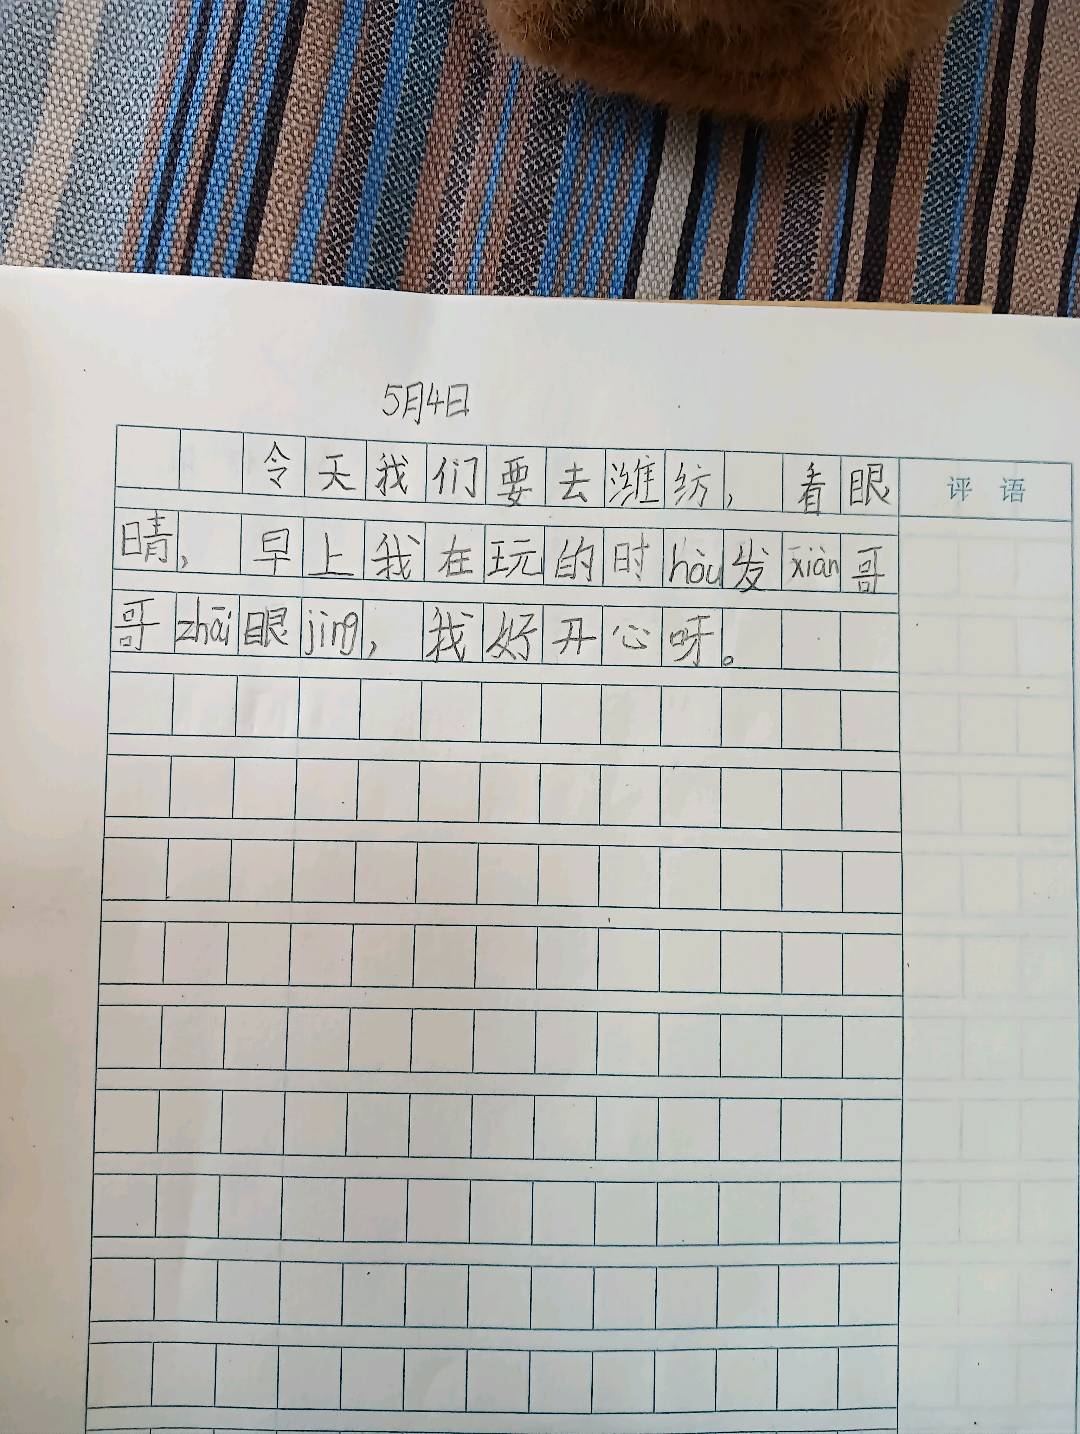 5月4日
令天我们要去潍纺，看眼
评语
晴，早上我在玩的时hòu发xiàn哥
哥zhāi眼jìng，我好开心呀。